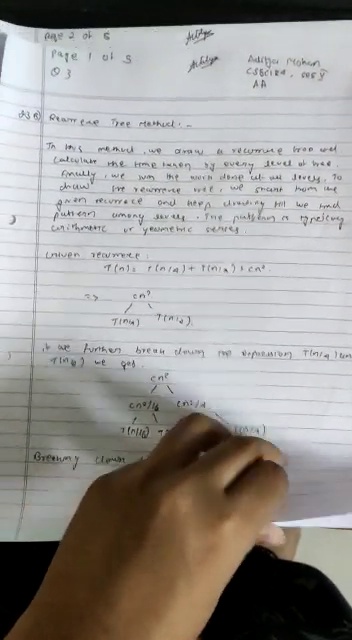 Page 2 of 5
Page 1 of 5
Q3
Aditya Mohan
AA
Recurrence Tree Method : -
In this method, we draw a recurrence tree and
calculate the time taken by every level of tree.
Finally, we sum the work done at all levels. To
draw the recurrence tree, we start from the
given recurrence and keep drawing till we find
pattern among levels. The pattern is typically
arithmetic or geometric series.
Given recurrence :
T(n) = T(n/4) + T(n/2) + cn²
=> cn²
T(n/4) T(n/2)
If we further break down the expression T(n/4) and
T(n/2) we get
cn²
cn²/16 cn²/4
T(n/16) T(n/4)
Breaking down